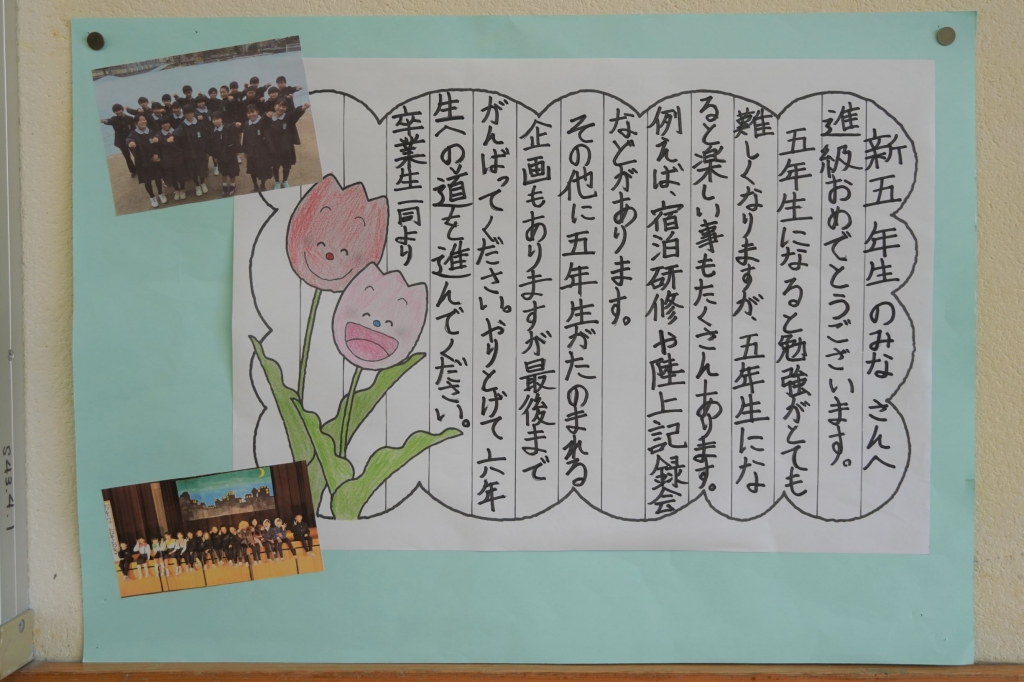 新五年生のみなさんへ
進級おめでとうございます。
五年生になると勉強がとても
難しくなりますが、五年生にな
ると楽しい事もたくさんあります。
例えば、宿泊研修や陸上記録会
などがあります。
その他に五年生がたのまれる
企画もありますが最後まで
がんばってください。やりとげて六年
生への道を進んでください。
卒業生一同より